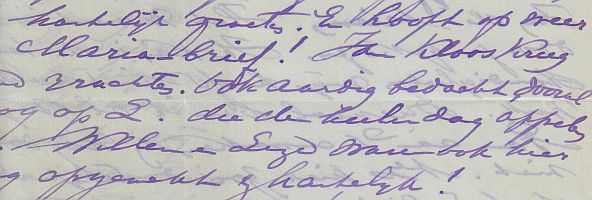 hartelijk groets. En hoopt op weer
Maria-brief! Jan Kloos kreeg
vruchtes. Ook aardig bedacht vooral
op 2. die de heelen dag appeles
. Willem en waren ook hier
opgewekt & hartelijk!